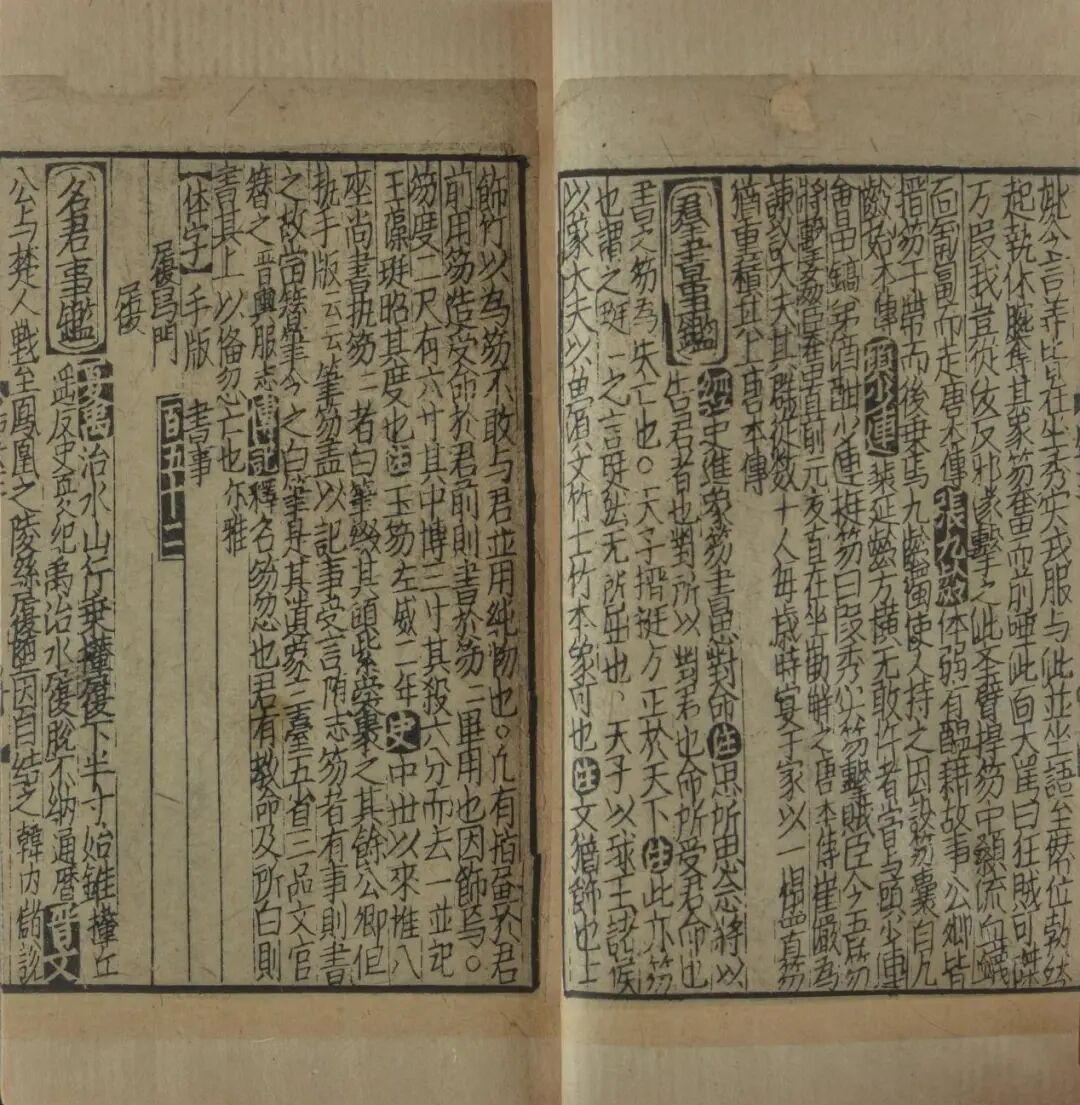 起執休腕奪其象笏奮而前唾泚面大罵曰狂賊可磔
万段我豈從汝反邪遂擊之泚挙臂捍笏中顙流血衊
面匍匐而走唐本傳張九齡体弱有醞藉故事公卿皆
搢笏于帶而後乗馬九齡獨使人持之因設笏囊自九
齡始本傳顔少連裴延齡方横无敢忤者嘗与顔少連
會田鎬第酒酣少連挺笏曰段秀实笏擊賊臣今吾笏
將擊姦臣在坐直前元友直在坐勸解之唐本傳崔嚴為
諫議大夫其群從数十人毎歳時宴于家以一榻置笏
猶重積其上唐本傳
群書事鑑經史進象笏書思對命注思所思念將以
告君者也對所以對君也命所受君命也
書之笏為失亡也○天子搢珽方正於天下注此亦笏
也謂之珽之言珽然无所屈也天子以球玉諸侯
以象大夫以魚須文竹士竹本象可也注文猶飾也士
飾竹以為笏不敢与君並用純物也○凢有指画於君
前用笏造受命於君前則書於笏二畢用也因飾焉○
笏度二尺有六寸其中博三寸其殺六分而去一並記
玉藻珽昭其度也注玉笏左威二年史中丗以來惟八
座尚書执笏二者白筆綴其頭紫囊裹之其餘公卿但
执手版云云筆笏盖以記事受言備忘笏者有事則書
之故常簪筆今之白筆是其遺象三臺五省三品文官
簪之晋輿服志傳記釋名笏忽也君有教命及所白則
書其上以俻忽亡也尓雅
【体字】手版書事
履舄門百五十二
履
名君事鑑夏禹治水山行乗檋履下半寸始錐
禹治水履脫不納通曆晋文
公上与楚人戦至鳳凰之陵絲履墮因自结之韓内儲説